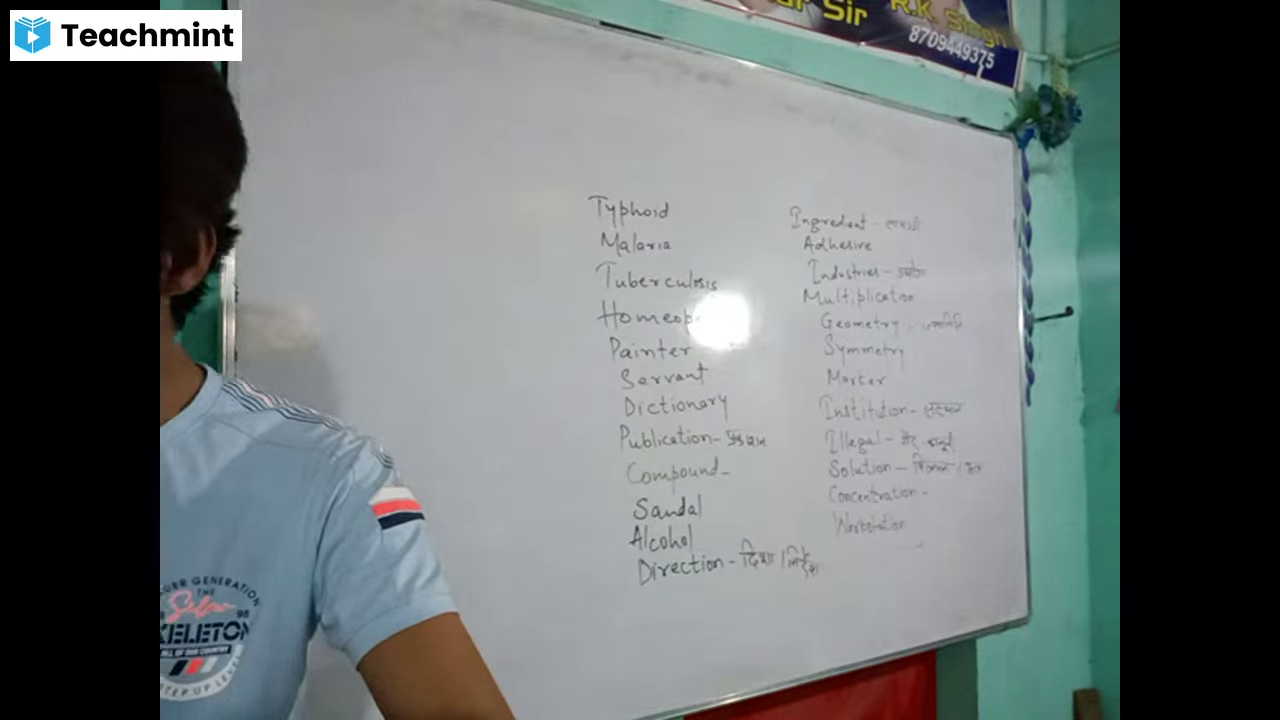 Teachmint
Sir
R.K. Singh
8709449375
Typhoid
Malaria
Tuberculosis
Homeop
Painter
Servant
Dictionary
Publication -
Compound -
Sandal
Alcohol
Direction - दिशा /
Ingredient -
Adhesive
Industries - उद्योग
Multiplication
Geometry -
Symmetry
Marker
Institution -
Illegal - गैर कानूनी
Solution -
Concentration -
GENERATION
THE
KELETON
ALL OF OUR COUNTRY
STEP UP